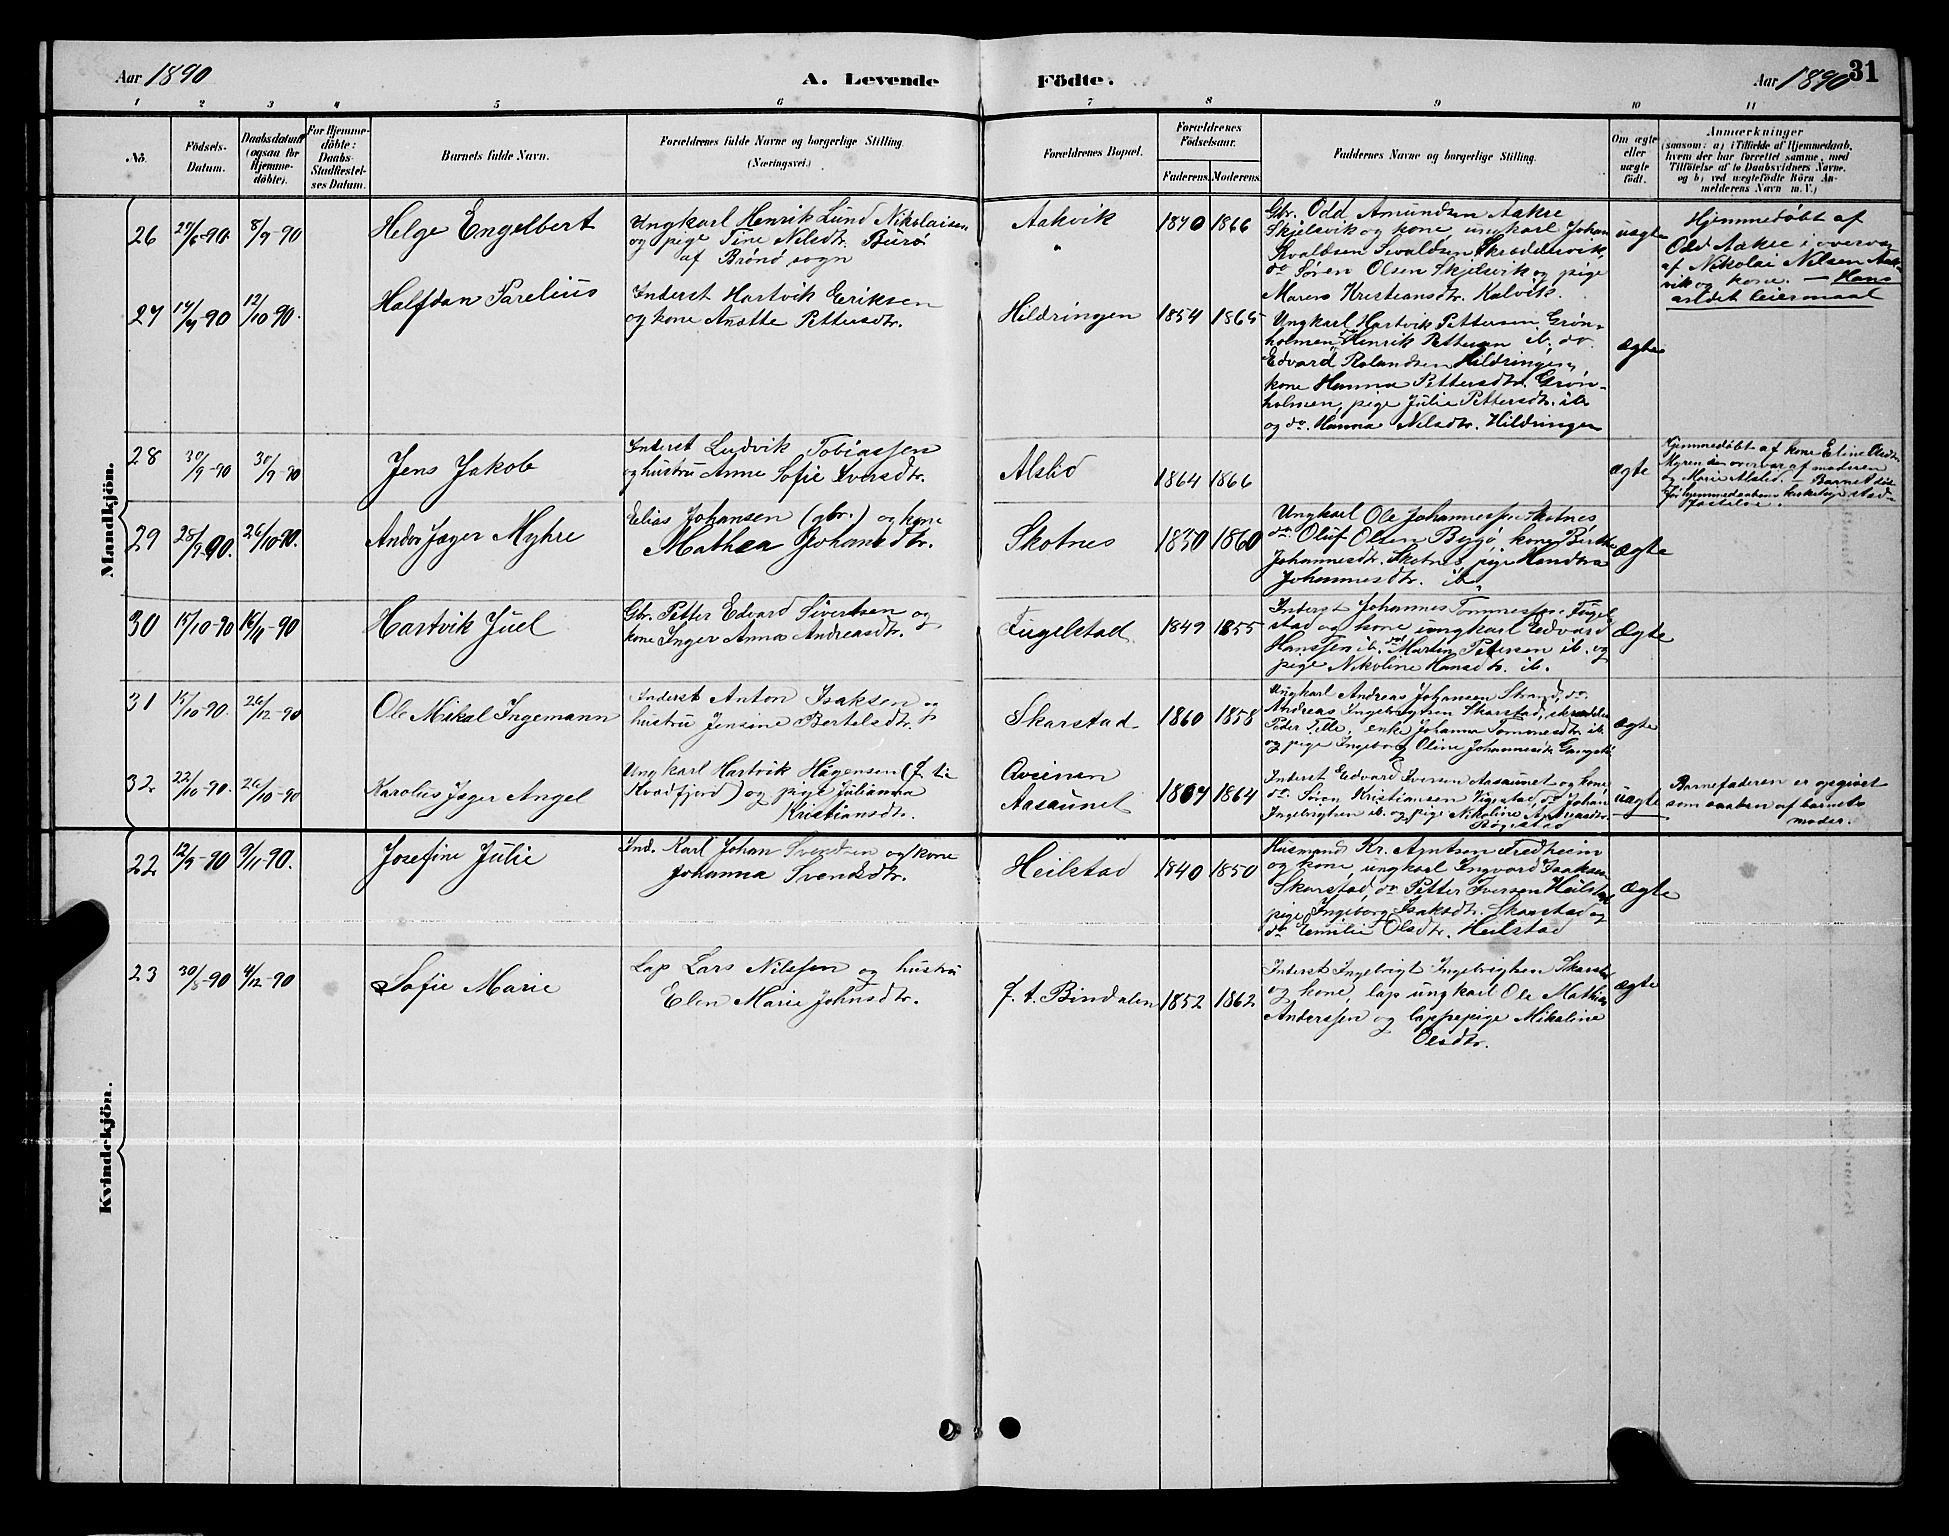 Aar 1890
A. Levende
Födte.
Aar 1890
31
1 2 3 4 5 6 7 8 9 10 11
No.
Födsels-
Datum.
Daabsdatum
(ogsaa for
Hjemme-
döbte).
For Hjemme-
döbte:
Daabs-
Stadfæstel-
ses Datum.
Barnets fulde Navn.
Forældrenes fulde Navne og borgerlige Stilling
(Næringsvei.)
Forældrenes Bopæl.
Forældrenes
Födselsaar.
Faderens. Moderens.
Faddernes Navne og borgerlige Stilling.
Om ægte
eller
uægte
födt.
Anmærkninger
(saasom: a) i Tilfælde af Hjemmedaab,
hvem der har forrettet samme, med
Tilföielse af to Daabsvidners Navne.
og b) ved uægtefödte Börn An-
melderens Navn m. V.)
Mandkjön.
26
27/6-90
8/9-90
Helge Engelbert
Ungkarl Henrik Lund Nikolaisen
og pige Tine Nilsdtr. Burø
af Brønø sogn
Aakvik
"
1870 1866
Gbr. Odd Amundsen Aakre
Skjelsvik og kone, ungkarl Johan
do Søren Olsen Skjelsvik og pige
Maren Kristiansdtr. Kalvik.
uægte
Hjemmedøbt af
Odd Aakre i overvær
af Nikolai Nilsen Aak-
vik og kone. – Hans
andet leiermaal
27
14/9-90
12/10-90.
Halfdan Parelius
Inderst Hartvik Eriksen
og kone Anætte Pettersdtr.
Hildringen
1854 1865
Ungkarl Hartvik Pettersen Grøn-
holmen, Henrik Pettersen ib. do
Edvard Rolandsen Hildringen,
kone Hanna Pettersdtr. Grøn-
holmen, pige Julie Pettersdtr. ib
og do. Hanna Nilsdtr. Hildringen
ægte
28
30/9-90
30/9-90
Jens Jakob
Inderst Ludvik Tobiassen
og hustru Anne Sofie Iversdtr.
Alslid
1864 1866
ægte
Hjemmedøbt af kone Eline Olsdtr.
Myren i overvær af moderen
og Marie Alslid. – Barnet døde
før hjemmedaabens kirkelige stad-
fæstelse.
29
28/9-90.
26/10-90.
Andor Jæger Myhre
Elias Johansen (gbr.) og kone
Mathea Johansdtr.
Skotnes
1830 1860
Ungkarl Ole Johannessen Skotnes
do. Oluf Olsen Bøgø, kone Berthe
Johannesdtr. Skotnes, pige
Johannesdtr. ib.
Ægte
30
15/10-90
16/11-90
Hartvik Juel
Gbr. Petter Edvard Sivertsen og
kone Inger Anna Andreasdtr.
Fugelstad
1849 1855
Inderst Johannes Tommessen Fugel-
stad og kone, ungkarl Edvard
Hanssen ib. do Martin Petersen ib. og
pige Nikoline Hansdtr. ib.
Ægte
31
15/10-90.
26/12-90
Ole Mikal Ingemann
Inderst Anton Isaksen og
hustru Jensine Bertelsdtr.
Skarstad
1860 1858
Ungkarl Andreas Johansen Strand, do.
Andreas Ingebrigtsen Skarstad, skrædder
Peder Tille, enke Johanna Tommesdtr. ib
og pige Ingeborg Oline Johannesdtr.
ægte
32
22/10-90.
26/10-90
Karolus Jæger Angel
Ungkarl Hartvik Hågensen (f. t. i
Kvædfjord) og pige Julianna
Kristiansdtr.
Aasaunet
1864
Inderst Edvard Iversen Aasaunet og kone
do. Søren Kristiansen Vigestad, do Johan
Ingebrigtsen ib. og pige Nikoline
Bøgestad
uægte
Barnefaderen er opgivet
som saadan af barnets
moder.
Kvindekjön.
22
12/9-90
9/11-90.
Josefine Julie
Ind. Karl Johan Svendsen og kone
Johanna Svendsdtr.
Heilstad
1840 1850
Husmand Kr. Arntsen Fredheim
og kone, ungkarl Ingvard Isaksen
Skarstad, do Petter Iversen Heilstad
pige Ingeborg Isaksdtr. Skarstad og
do Emilie Olsdtr. Heilstad
Ægte
23
30/5-90
4/12-90
Sofie Marie
Lap Lars Nilssen og hustru
Elen Marie Johnsdtr.
f. t. Bindalen
1852 1862
Inderst Ingebrigt Ingebrigtsen Skarstad
og kone, lap ungkarl Ole Mathias
Anderssen og lappepige Mikaline
Olsdtr.
ægte